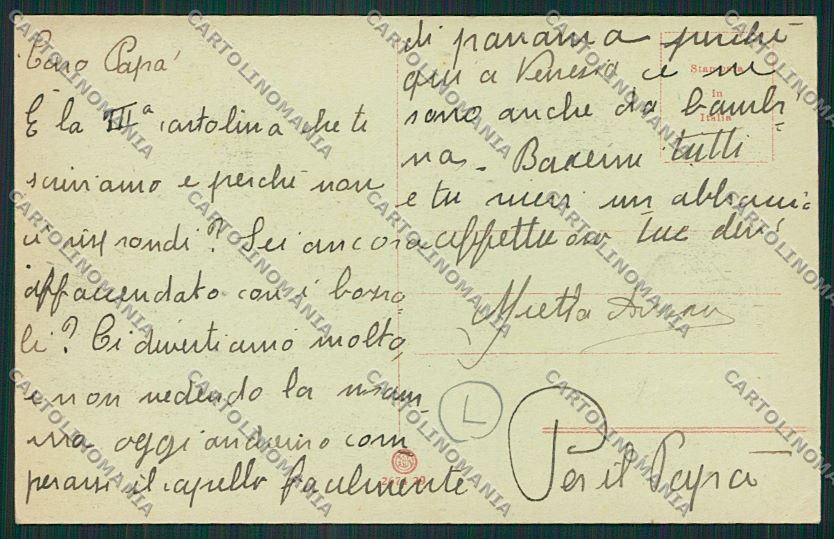 Caro Papà
È la IIIª cartolina che te
scriviamo e perchè non
ci rispondi? Sei ancora
affaccendato con i bozzo
li? Ci divertiamo molto,
e non vedendo la mam-
ma oggi andremo com
perarsi il capello facilmente
di panama perchè
qui a Venezia ce ne
sono anche da bambi
na. Bacerai tutti
e tu ricevi un abbraccio
affettuoso tue
Mietta
Per il Papà
Stampata
in
Italia
L
CARTOLINOMANIA